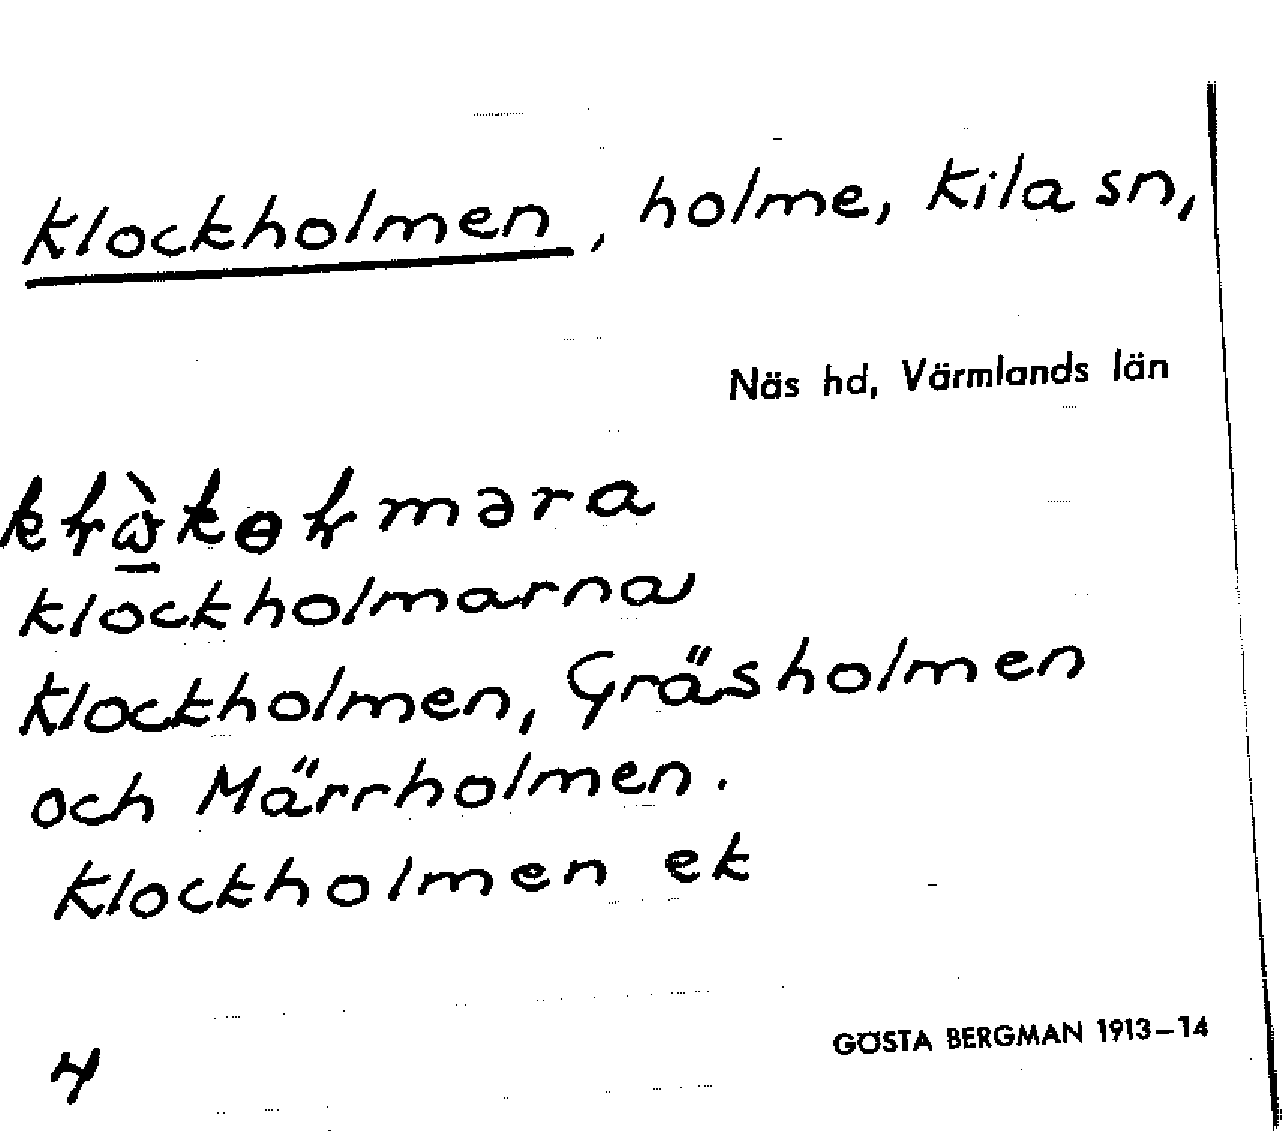 Klockholmen, holme, Kila sn,
Näs hd, Värmlands län
klockholmarna
Klockholmen, Gräsholmen
och Märrholmen.
Klockholmen ek
GÖSTA BERGMAN 1913–14
4